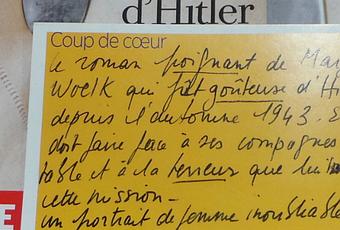 d'Hitler
Coup de cœur
le roman poignant de Mar
Woelk qui fut goûteuse d'Hi
depuis l'automne 1943. E
doit faire face à ses compagnes
table et à la terreur que lui
cette mission -
un portrait de femme inoubliable
E